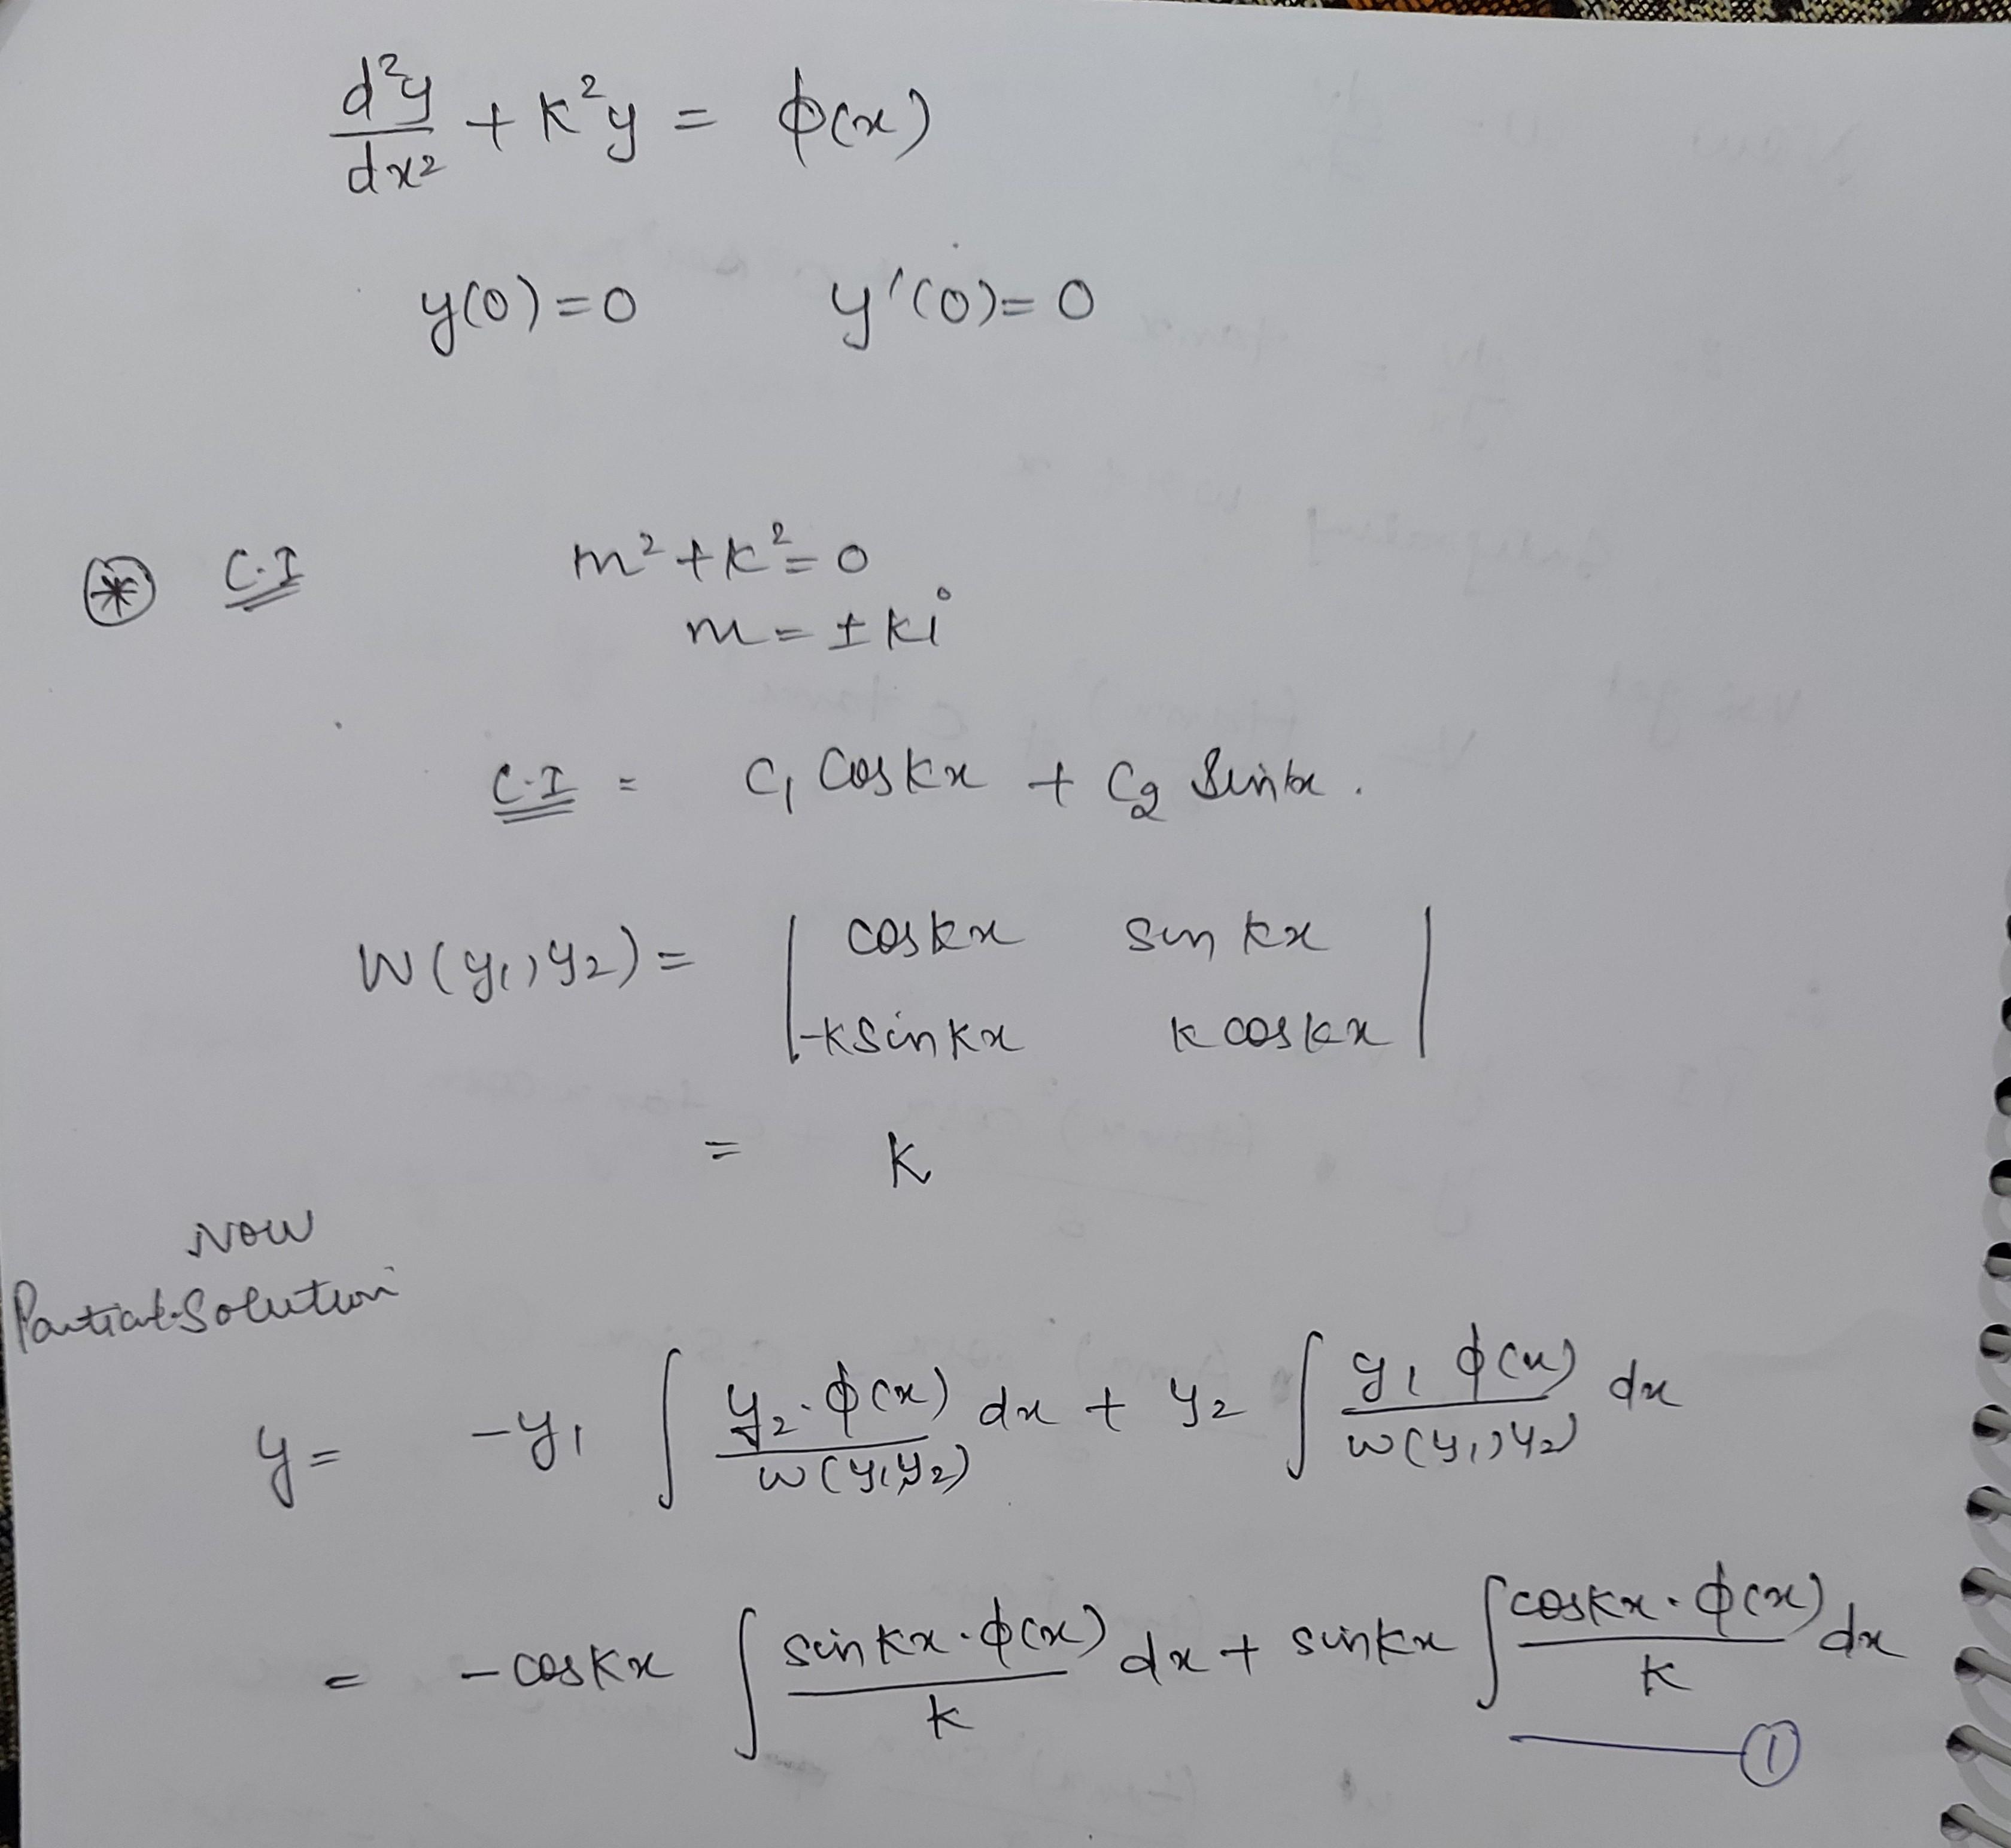 d²y/dx² + k²y = ϕ(x)
y(0)=0 y'(0)=0
⊛ C.I m²+k²=0
m=±ki
C.I = C₁ Coskx + C₂ Sinkx.
W(y₁,y₂)= | coskx sin kx |
| -k sin kx k coskx |
= k
NOW
Partial Solution
y= -y₁ ∫ y₂·ϕ(x)/w(y₁,y₂) dx + y₂ ∫ y₁ ϕ(x)/w(y₁,y₂) dx
= -coskx ∫ sin kx·ϕ(x)/k dx + sinkx ∫ coskx·ϕ(x)/k dx
①